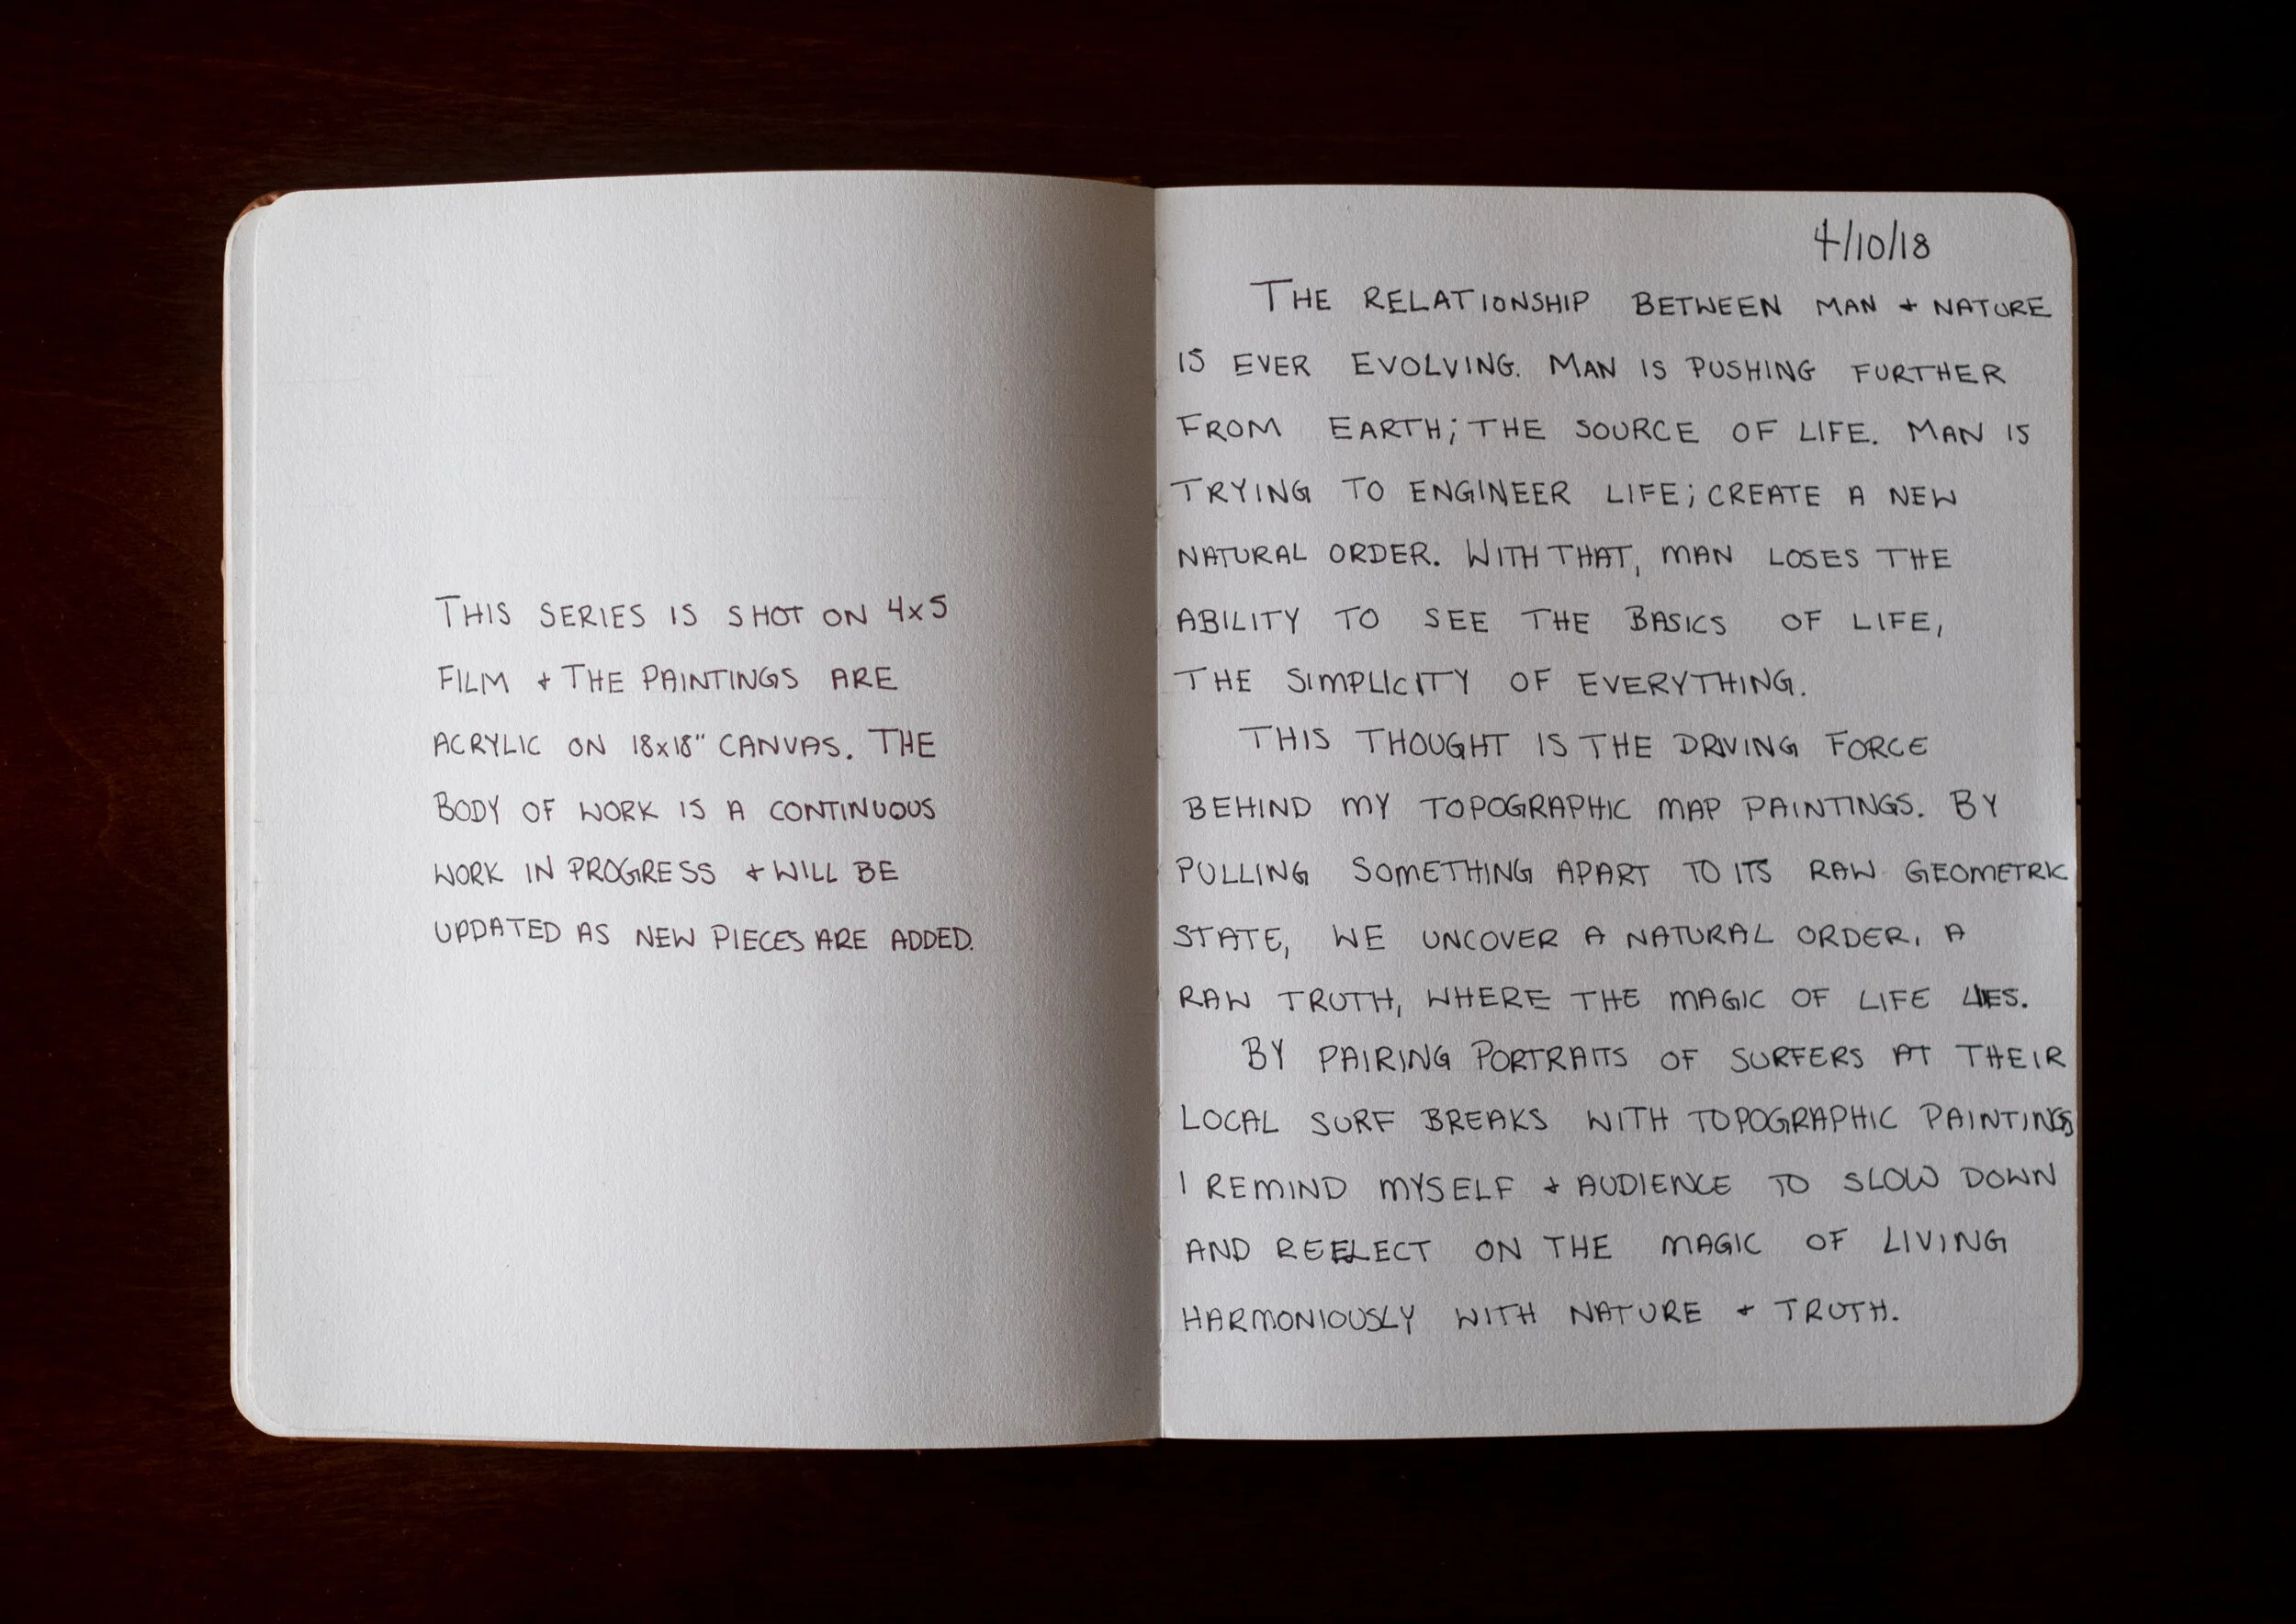 THIS SERIES IS SHOT ON 4x5
FILM + THE PAINTINGS ARE
ACRYLIC ON 18x18" CANVAS. THE
BODY OF WORK IS A CONTINUOUS
WORK IN PROGRESS + WILL BE
UPDATED AS NEW PIECES ARE ADDED.
4/10/18
THE RELATIONSHIP BETWEEN MAN + NATURE
IS EVER EVOLVING. MAN IS PUSHING FURTHER
FROM EARTH; THE SOURCE OF LIFE. MAN IS
TRYING TO ENGINEER LIFE; CREATE A NEW
NATURAL ORDER. WITH THAT, MAN LOSES THE
ABILITY TO SEE THE BASICS OF LIFE,
THE SIMPLICITY OF EVERYTHING.
THIS THOUGHT IS THE DRIVING FORCE
BEHIND MY TOPOGRAPHIC MAP PAINTINGS. BY
PULLING SOMETHING APART TO ITS RAW GEOMETRIC
STATE, WE UNCOVER A NATURAL ORDER. A
RAW TRUTH, WHERE THE MAGIC OF LIFE LIES.
BY PAIRING PORTRAITS OF SURFERS AT THEIR
LOCAL SURF BREAKS WITH TOPOGRAPHIC PAINTINGS
I REMIND MYSELF + AUDIENCE TO SLOW DOWN
AND REFLECT ON THE MAGIC OF LIVING
HARMONIOUSLY WITH NATURE + TRUTH.